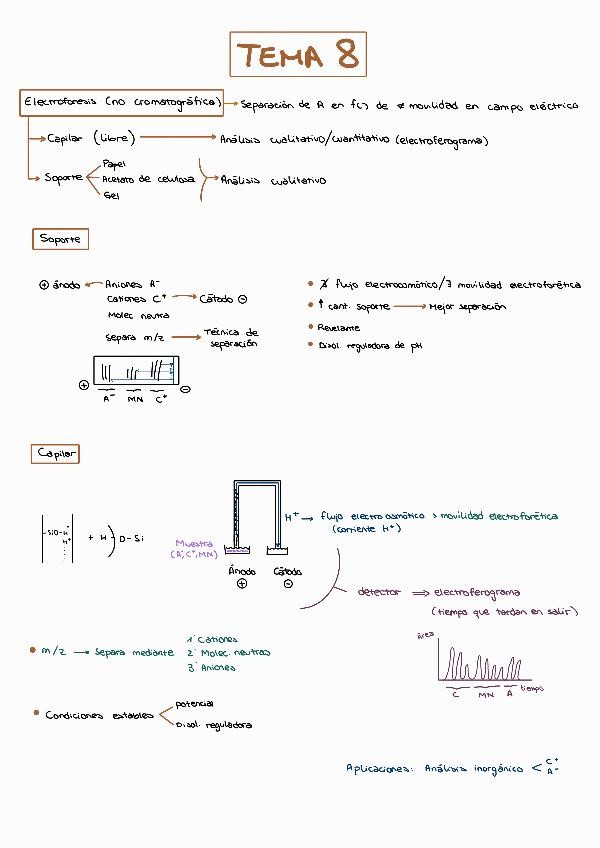 TEMA 8
Electroforesis (no cromatográfica) → Separación de A en f(x) de ≠ movilidad en campo eléctrico
Capilar (libre) → Análisis cualitativo/cuantitativo (electroferograma)
Papel
Soporte Acetato de celulosa → Análisis cualitativo
Gel
Soporte
⊕ ánodo ← Aniones A⁻
Cationes C⁺ → Cátodo ⊖
Molec neutra
Separa m/z → Técnica de separación
⊕ ⊖
A⁻ MN C⁺
• ∄ flujo electroosmótico/∃ movilidad electroforética
• ↑ cant. soporte → Mejor separación
• Revelante
• Disol. reguladora de pH
Capilar
-SiO-H⁺
H⁺
+ H O-Si
Muestra
(A⁻,C⁺,MN)
Ánodo Cátodo
⊕ ⊖
H⁺ → flujo electroosmótico > movilidad electroforética
(corriente H⁺)
detector ⇒ electroferograma
(tiempo que tardan en salir)
• m/z → Separa mediante
1º Cationes
2º Molec. neutras
3º Aniones
área
C MN A tiempo
• Condiciones estables
potencial
Disol. reguladora
Aplicaciones: Análisis inorgánico < C⁺
A⁻